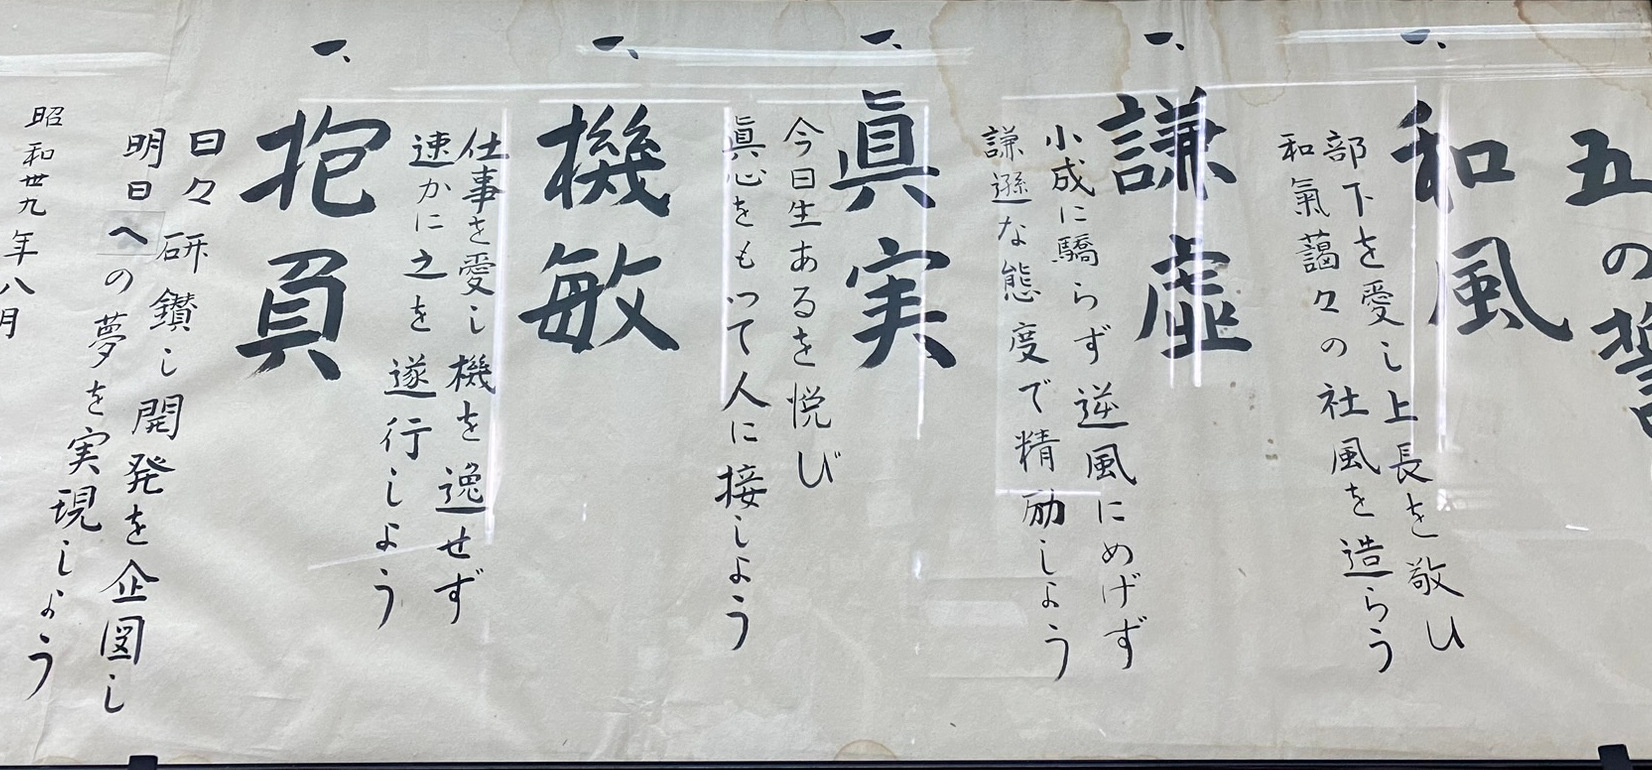 五の誓
一、和風
部下を愛し上長を敬ひ
和氣藹々の社風を造らう
一、謙虚
小成に驕らず逆風にめげず
謙遜な態度で精励しよう
一、眞実
今日生あるを悦び
眞心をもって人に接しよう
一、機敏
仕事を愛し機を逸せず
速かに之を遂行しよう
一、抱負
日々研鑚し開発を企図し
明日への夢を実現しよう
昭和卅九年八月